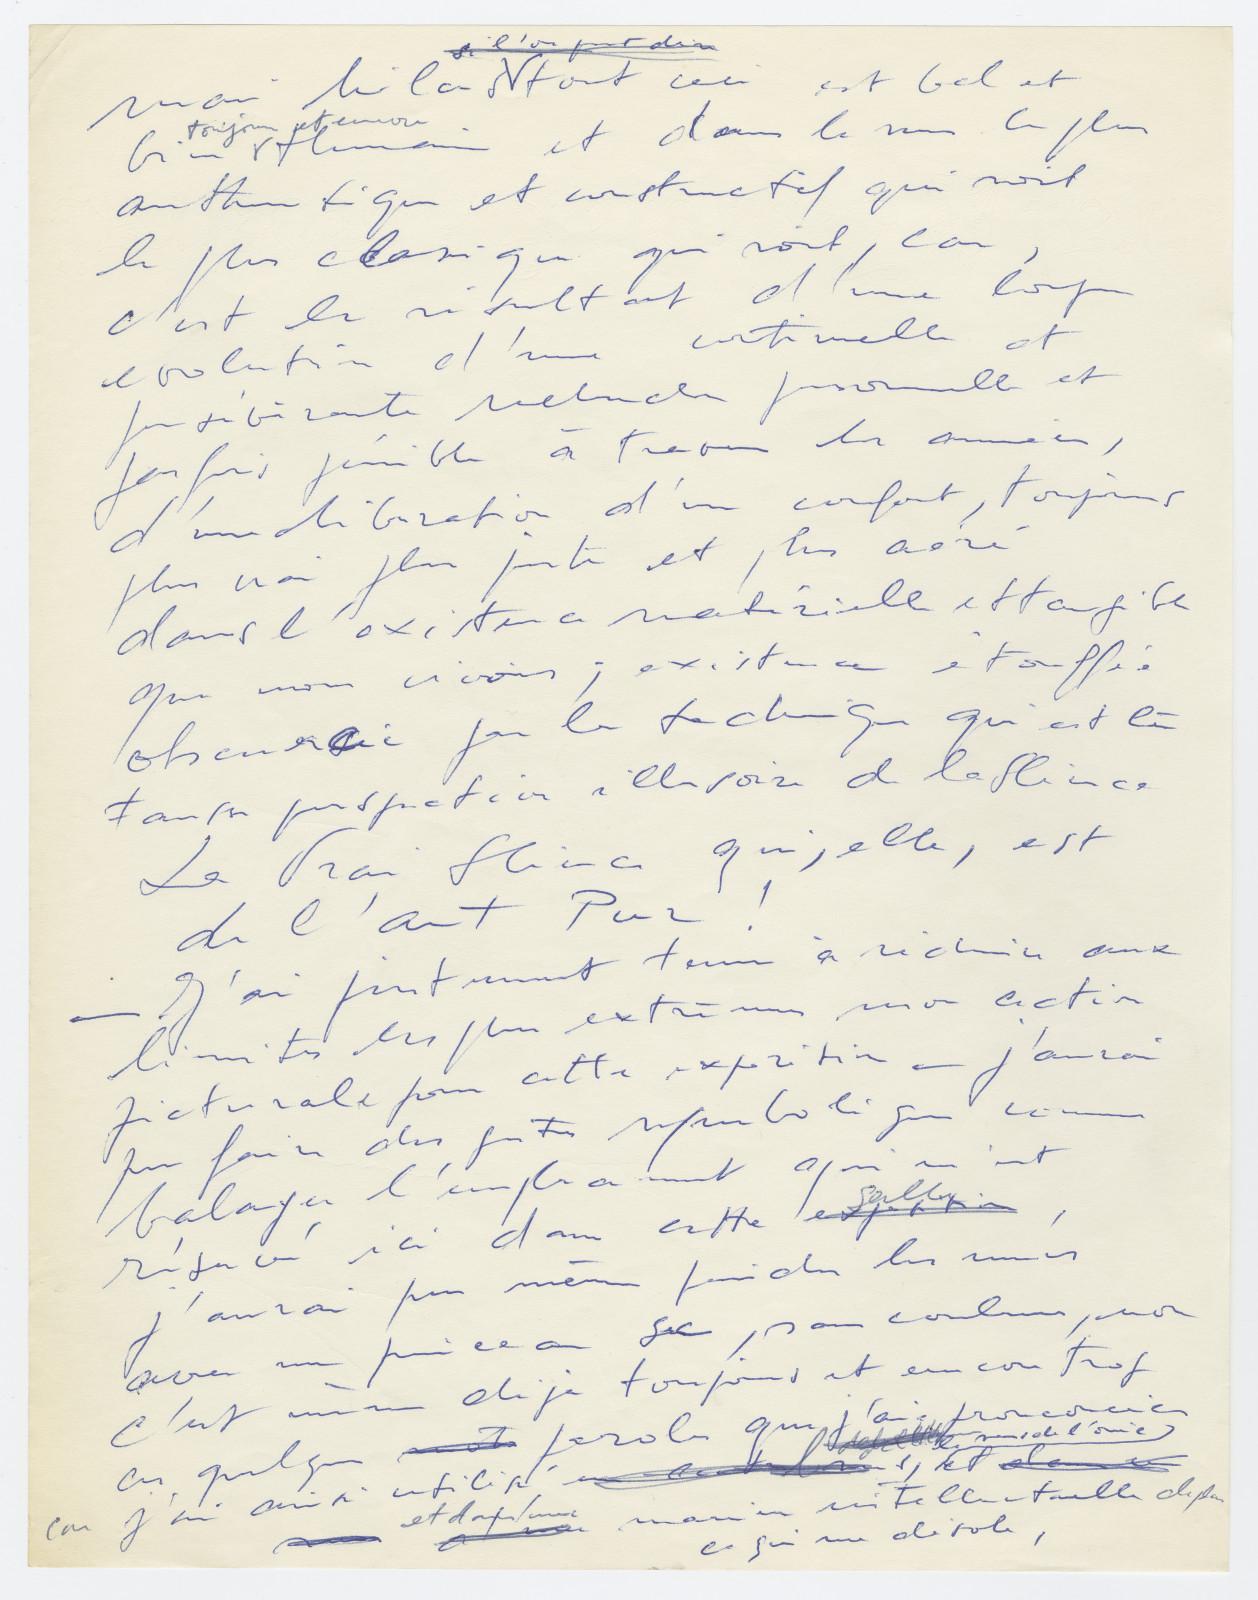 si l'on peut dire
mais hélas tout ceci est bel et
toujours et encore
bien humain et dans le sens le plus
authentique et constructif qui soit
le plus classique qui soit, car,
c'est le résultat d'une longue
evolution d'une continuelle et
persévérante recherche personnelle et
parfois pénible à travers les années,
d'une libération d'un confort, toujours
plus vrai plus juste et plus aéré
dans l'existence matérielle et tangible
que nous vivons ; existence étouffée
obscurcie par la technique qui est la
fausse perspective illusoire de la Science
La Vraie Science qui, elle, est
de l'art Pur !
— J'ai justement tenu à réduire aux
limites les plus extrêmes mon action
picturale pour cette exposition — j'aurai
pu faire des gestes symboliques comme
balayer l'emplacement qui m'est
salle
réservé ici dans cette exposition,
j'aurai pu même peindre les murs
avec un pinceau sec, sans couleur, non
c'est même déjà toujours et encore trop
ces quelques mots paroles que j'ai prononcées
le sens de l'ouie
car j'ai ainsi utilisé et
et de plus d'une
manière intellectuelle de plus
ce qui me désole,